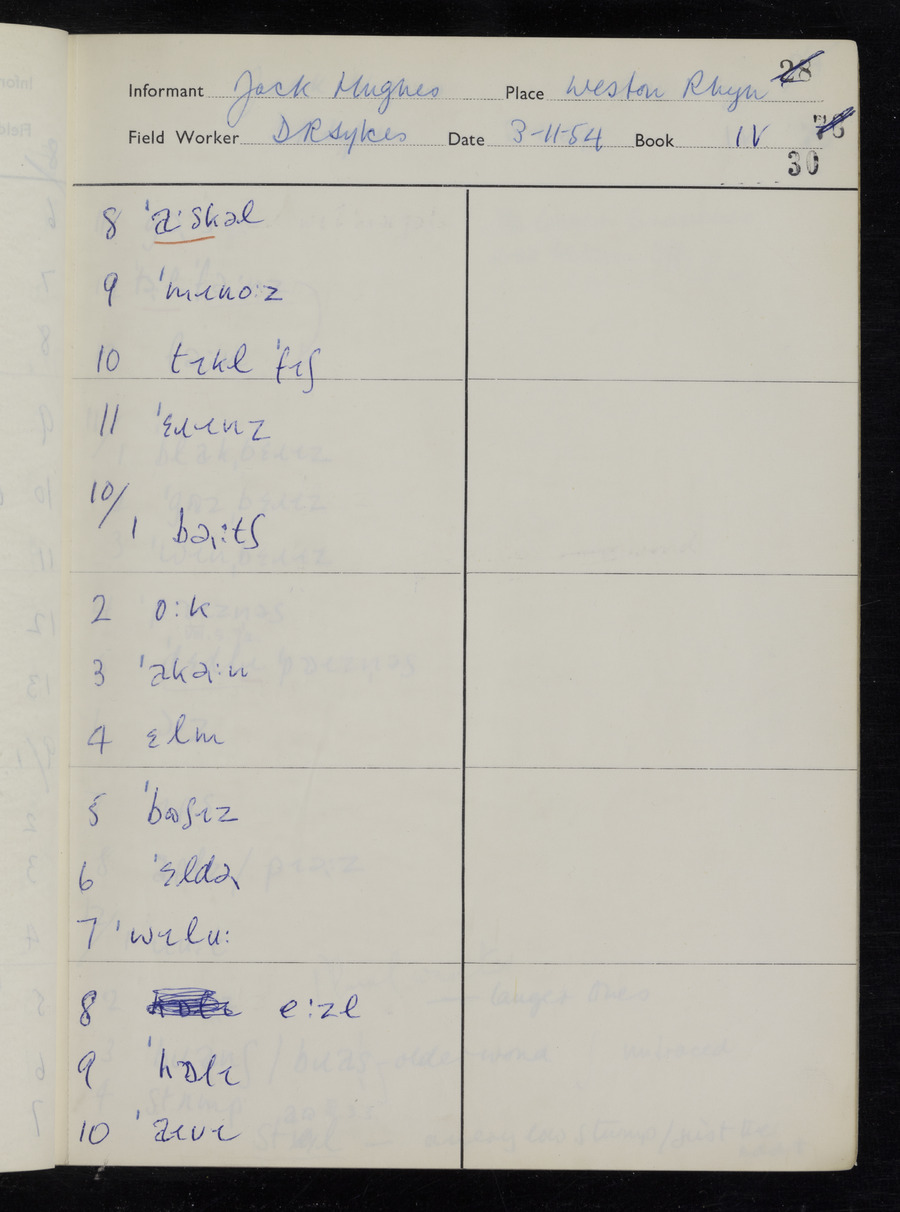 28
Informant Jack Hughes Place Weston Rhyn
Field Worker D R Sykes Date 3-11-54 Book IV
30
8 ˈaːskəl
9 ˈmɪnoːz
10 tɪkl ˈfɪʃ
11 ˈɛɹɪnz
10/
1 bəɹːtʃ
2 oːk
3 ˈakəːn
4 ɛlm
5 ˈbʊʃɪz
6 ˈɛldəɹ
7 ˈwɪluː
8 eːzl
9 ˈhɒlɪ
10 ˈaɪvɪ